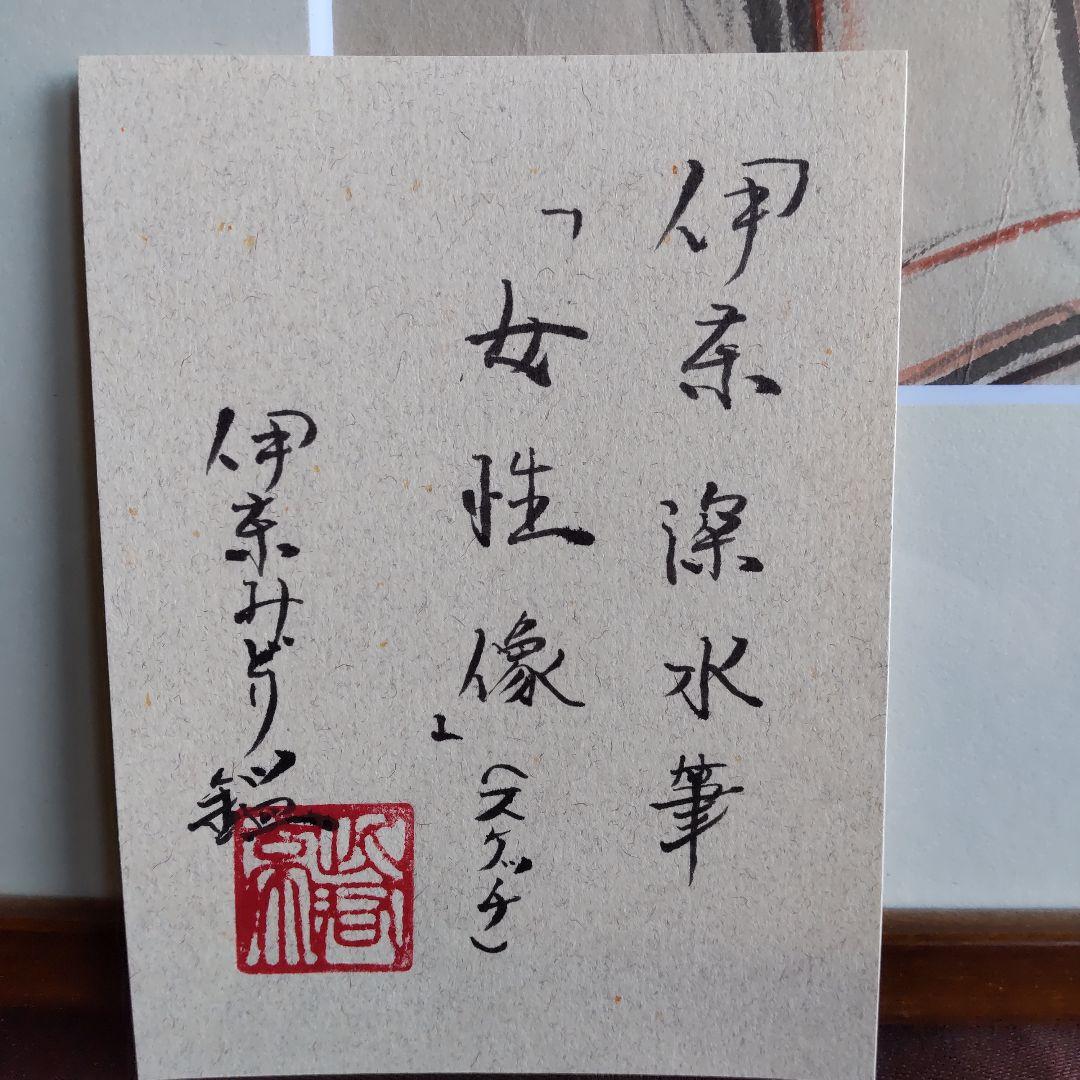 伊東深水筆
「女性像」（スケッチ）
伊東みどり鑑